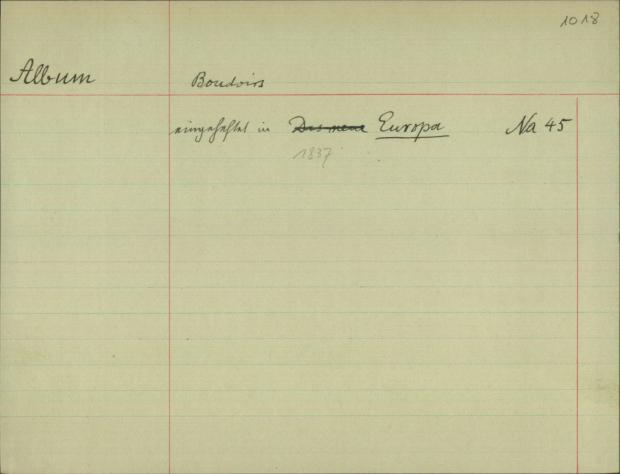 1018
Album Boudoirs
eingeheftet in Das neue Europa Na 45
1837